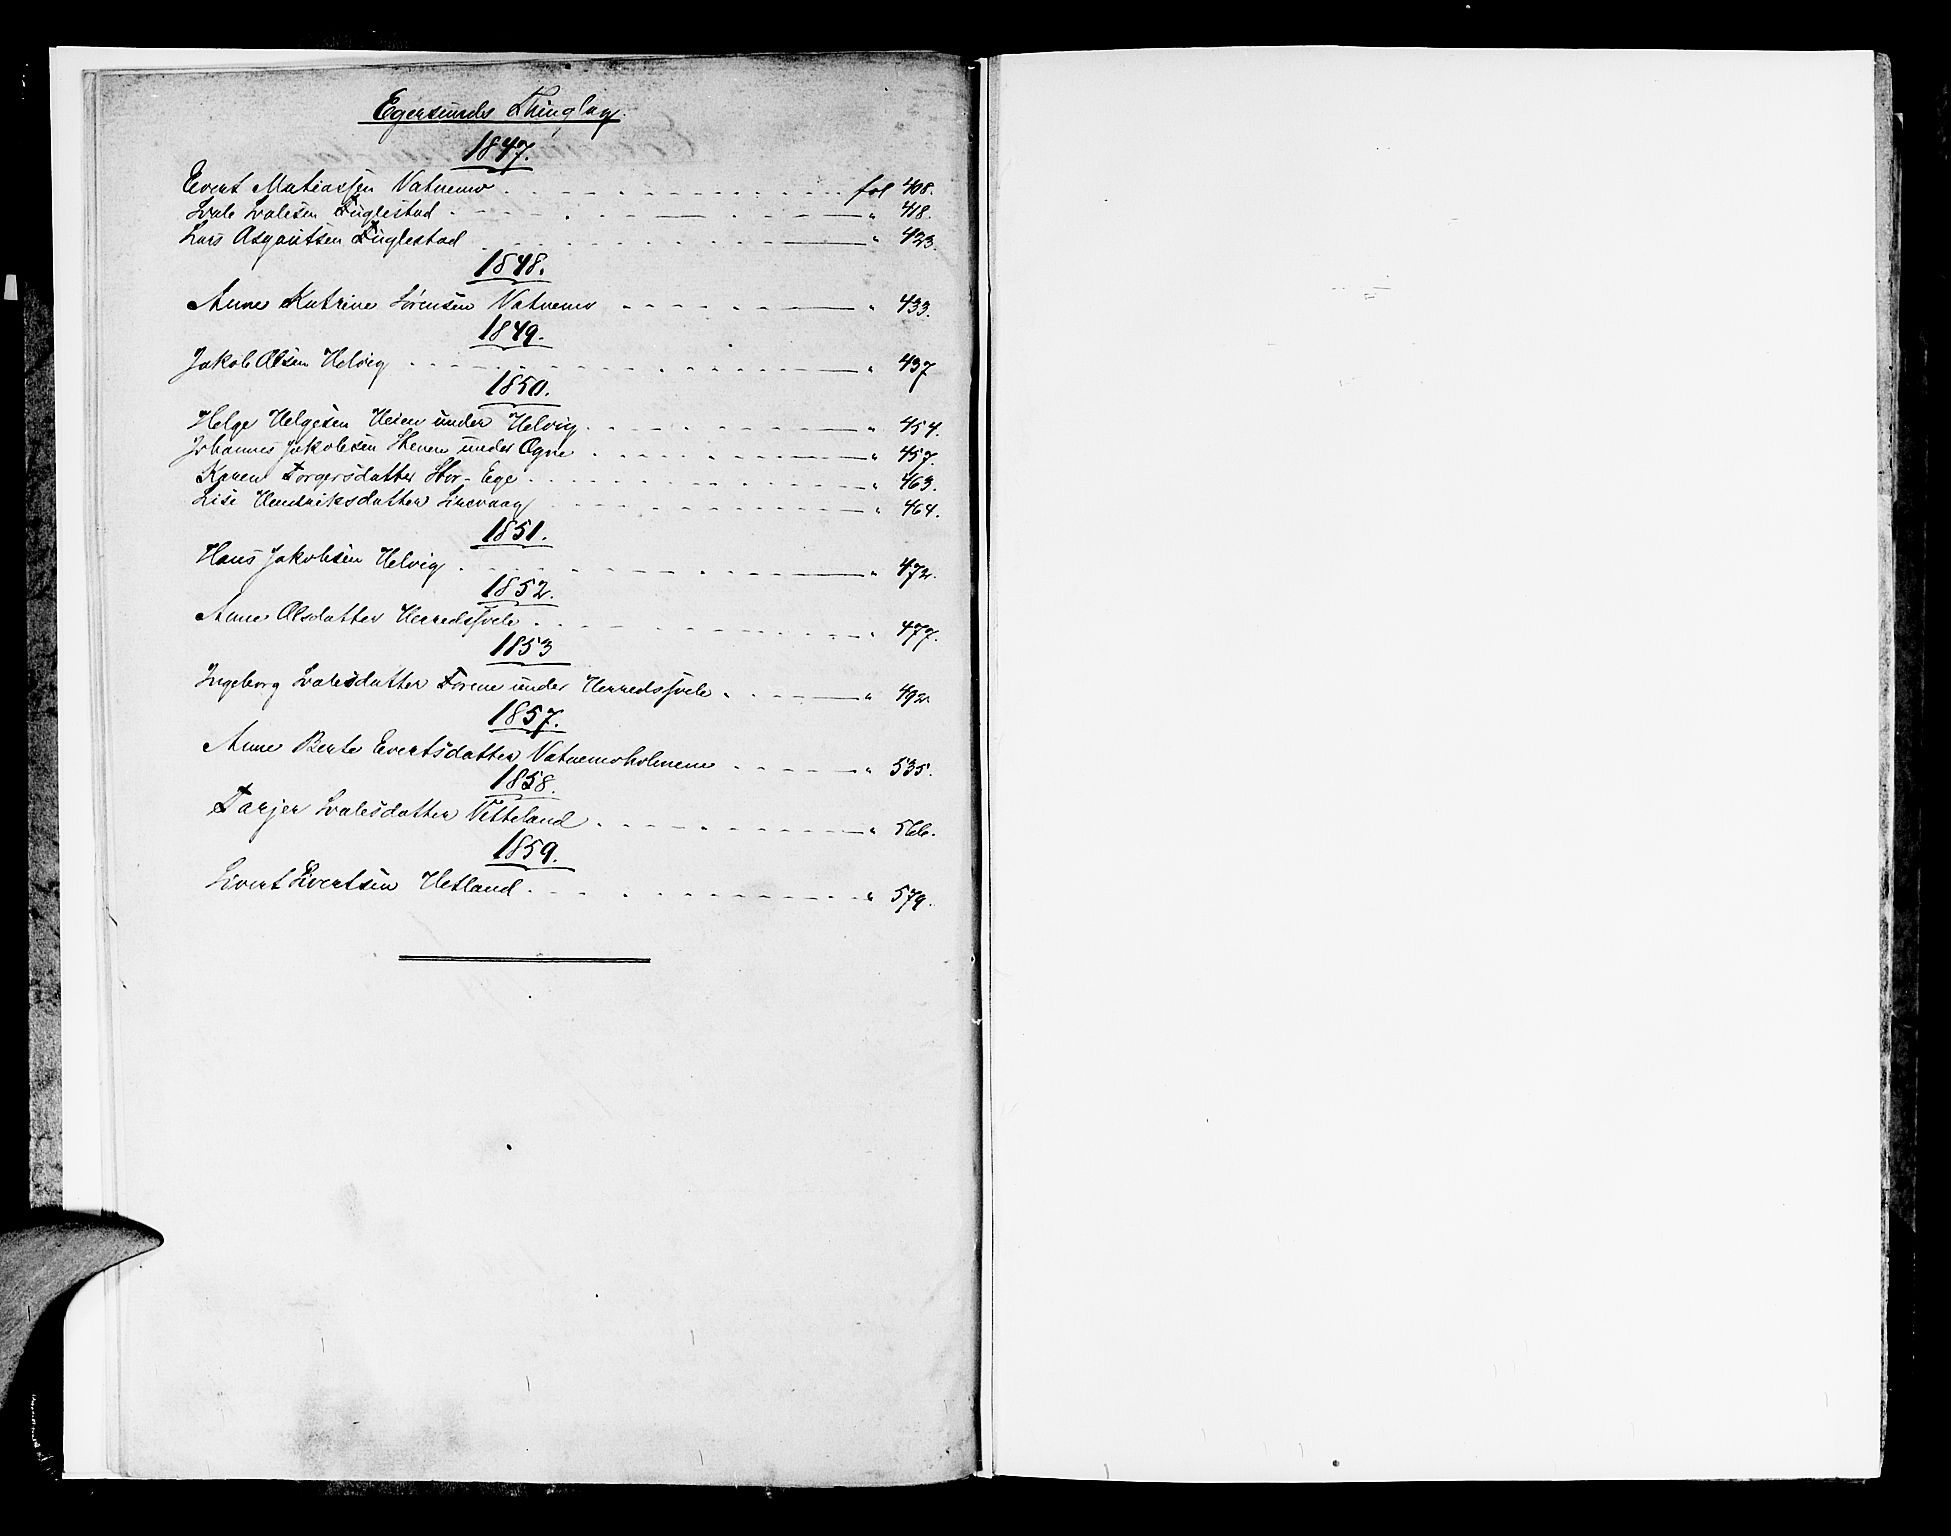 Egersunds Thinglag.
1847.
Evert Matiassen Vatnemo fol 408.
Svale Svalesen Fuglestad " 418.
Lars Asgautsen Fuglestad " 423.
1848.
Anne Katrine Sørensen Vatnemo " 433.
1849.
Jakob Olsen Helvig " 437
1850.
Helge Helgesen Heien under Helvig " 454.
Johannes Jakobsen under Ogne " 457.
Karen Torgersdatter Stor-Ege " 463.
Lise Hendriksdatter Sirevaag " 464.
1851.
Hans Jakobsen Helvig " 472.
1852.
Anne Olsdatter Herredsfvele " 477.
1853
Ingeborg Svalesdatter under Herredsfvele " 492.
1857.
Anne Berte Evertsdatter Vatnemoholmene " 535.
1858.
Tarjer Svalesdatter Vetteland " 566.
1859.
Sivert Sivertsen Hetland " 579.